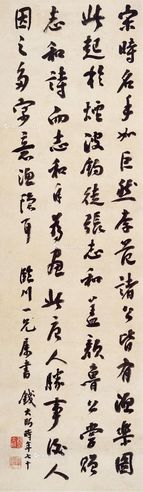 宋時名手如巨然李范諸公皆有漁樂圖
此起於煙波釣徒張志和蓋顏魯公嘗贈
志和詩而志和自為畫此唐人勝事後人
因之多寓意漁隱耳 川一兄屬書 錢大昕時年七十